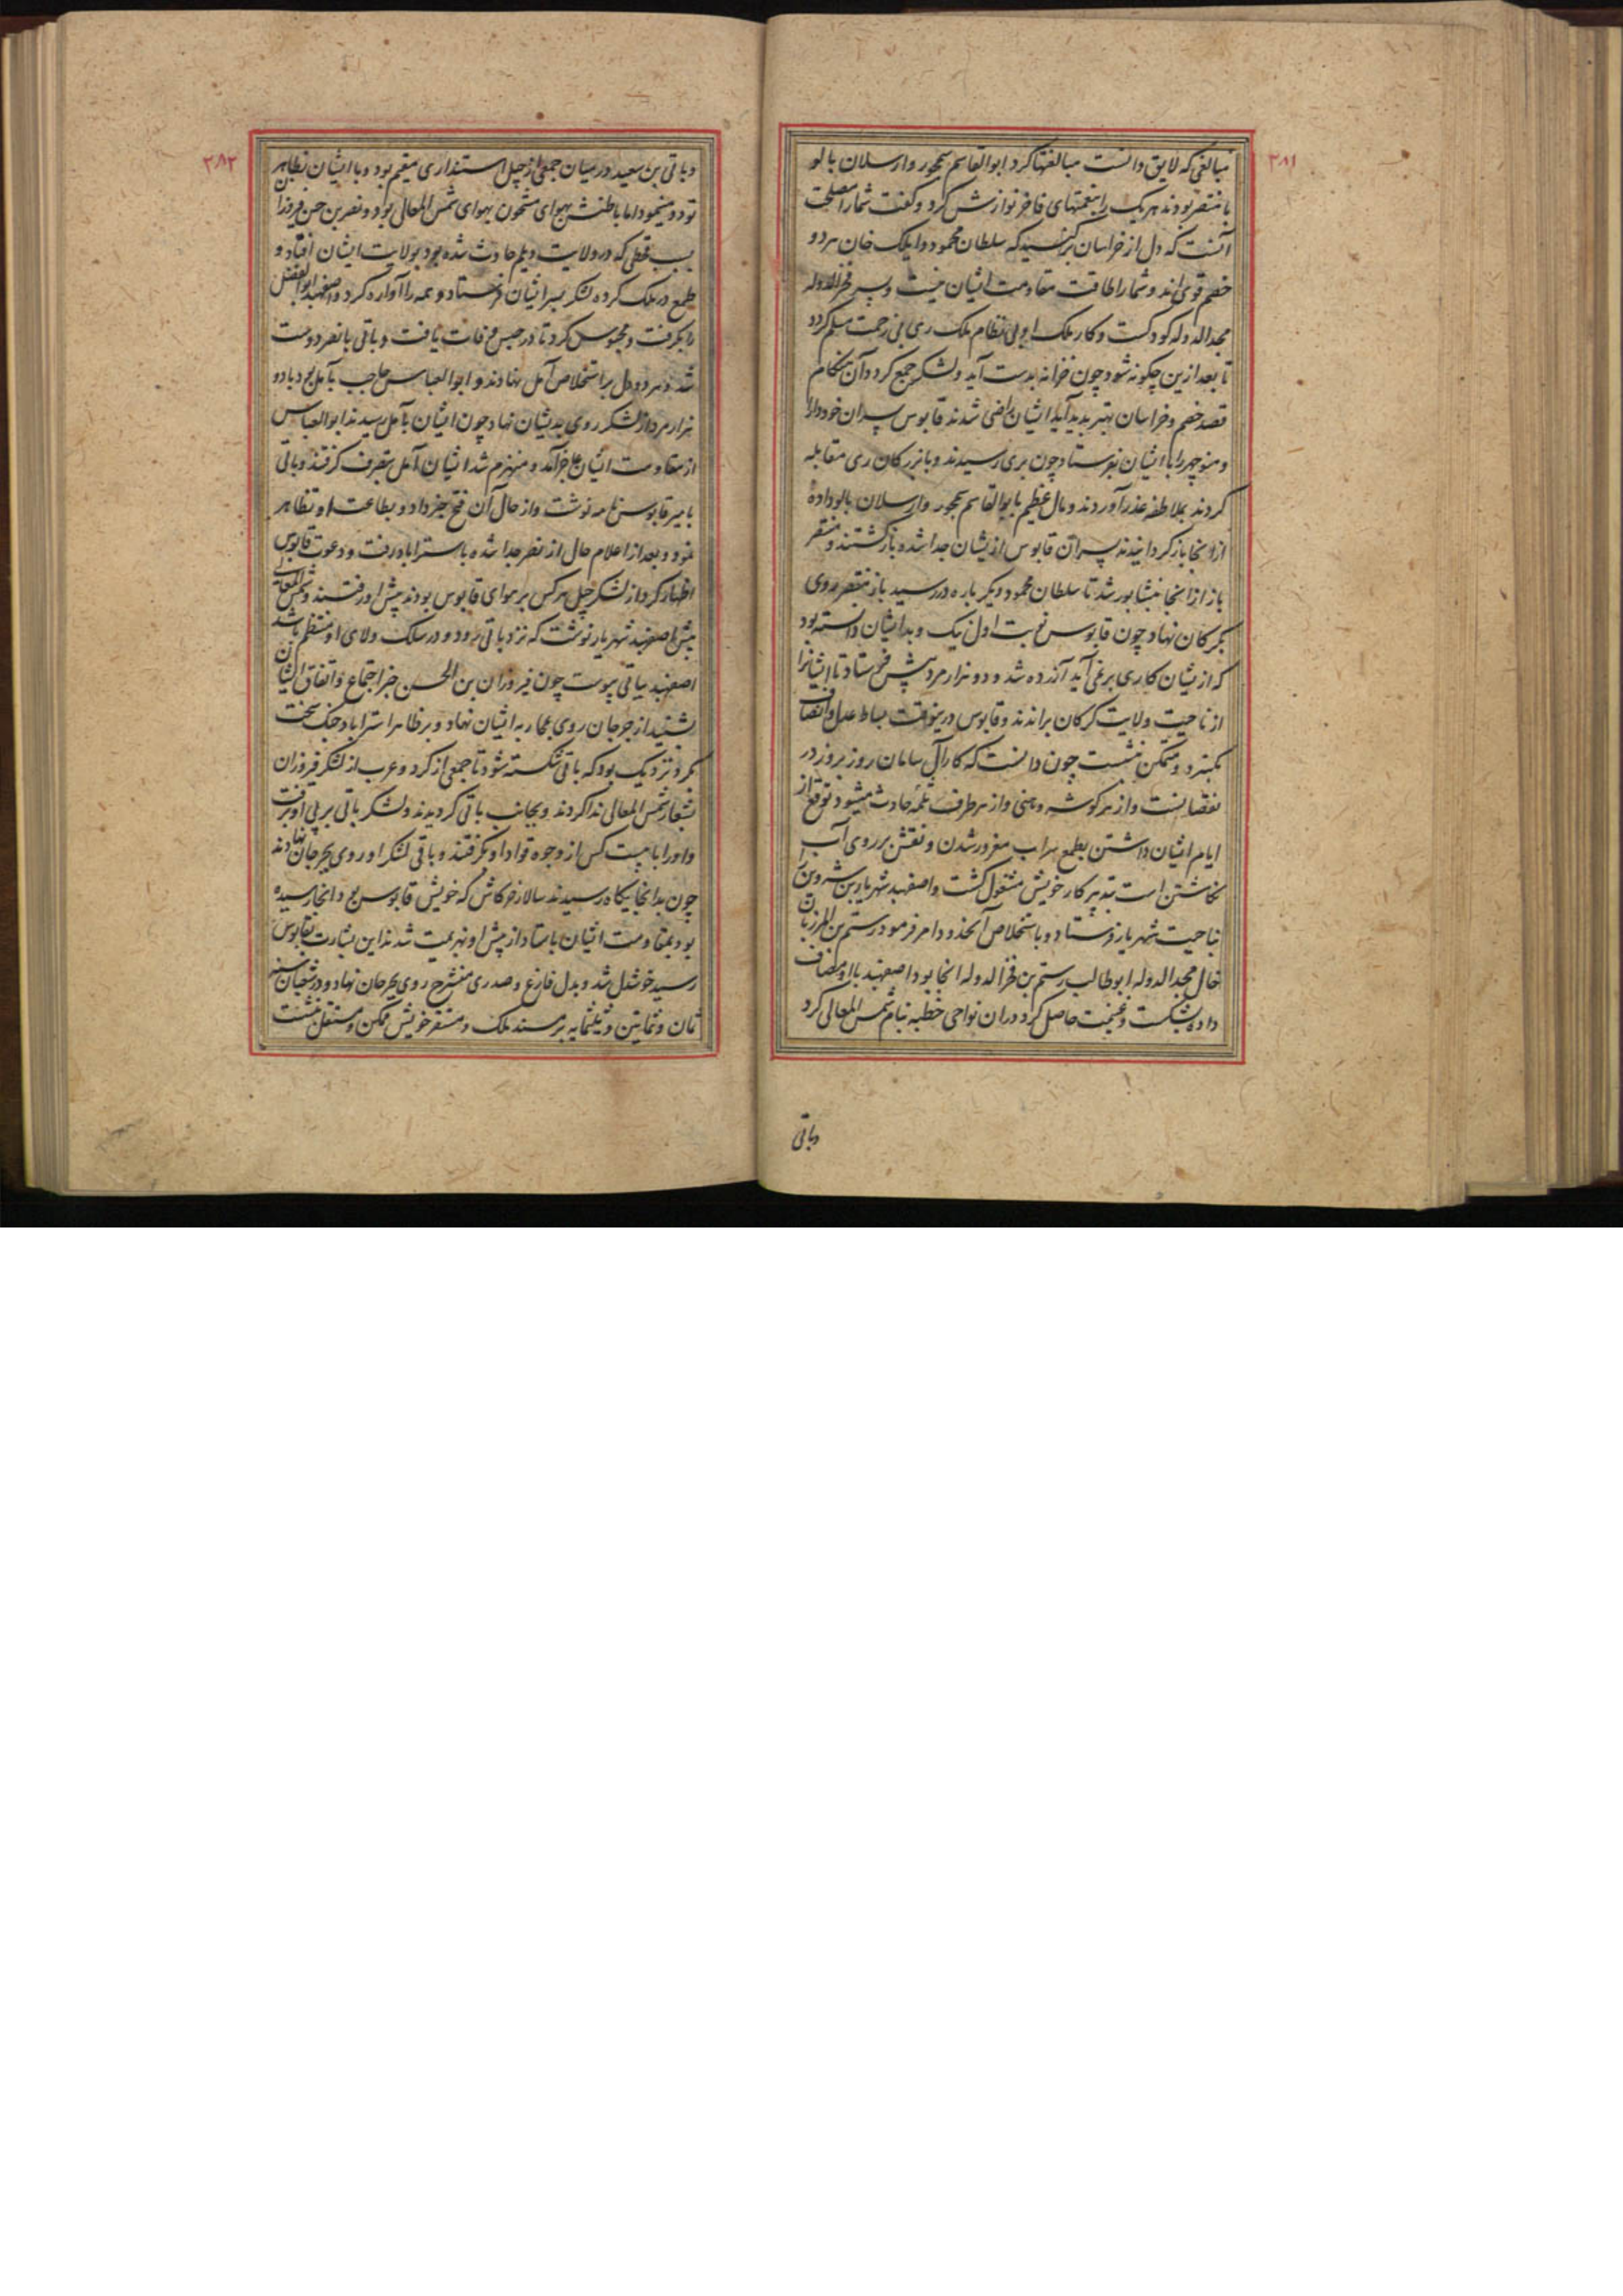 ۳۸۱
مبالغتی که لایق دانست مبالغتها کرد ابوالقاسم سمجور و ارسلان بالو
با منتصر بودند هر یک را بنعمتهای فاخر نوازش کرد و گفت شما را مصلحت
آنست که دل از خراسان برکنید که سلطان محمود و ایلک خان هر دو
خصم قوی اند و شما را طاقت مقاومت ایشان نیست و پسر فخرالدوله
مجدالدوله کودکست و کار ملک او بی نظام ملک ری بی زحمت مسلم کردد
تا بعد ازین چکونه شود چون خزانه بدست آید و لشکر جمع کردد آن هنکام
قصد خصم و خراسان بهتر بدید آید ایشان راضی شدند قابوس پسران خود دارا
و منوچهر را با ایشان بفرستاد چون بری رسیدند و با بزرکان ری مقابله
کردند بملاطفه عذر آوردند و مال عظیم بابوالقاسم سمجور و ارسلان بالو داده
از انجا باز کردانیدند پسران قابوس ازیشان جدا شده بازکشتند و منتصر
باز از انجا بنشابور شد تا سلطان محمود دیکر باره در رسید باز منتصر روی
بکرکان نهاد چون قابوس نوبت اول نیک و بد ایشان دانسته بود
که ازیشان کاری بر نمی آید آزرده شد و دو هزار مرد پیش فرستاد تا ایشانرا
از ناحیت ولایت کرکان براندند و قابوس درینوقت بساط عدل و انصاف
بکسترد و متمکن بنشست چون دانست که کار آل سامان روز بروز در
نقصانست و از هر کوشه وهنی و از هر طرف ثلمه حادث میشود توقع از
ایام ایشان داشتن بطمع سراب مغرور شدن و نقش بر روی آب
نکاشتن است بتدبیر کار خویش مشغول کشت و اصفهبد شهریار بن شروین را
بناحیت شهریار فرستاد و باستخلاص آنحدود امر فرمود رستم بن المرزبان
خال مجدالدوله ابوطالب رستم بن فخرالدوله انجا بود اصفهبد با او مصاف
داده بشکست و غنیمت حاصل کرد در ان نواحی خطبه بنام شمس المعالی کرد
وباتی
۳۸۲
و باتی بن سعید در میان جمعی از جیل استنداری مقیم بود و با ایشان تظاهر
تودد مینمود اما باطنش بهوای مشحون بهوای شمس المعالی بود و نصر بن حسن فیروزان
بسبب قحطی که در ولایت دیلم حادث شده بود بولایت ایشان افتاد و
طمع در ملک کرده لشکر بسر ایشان فرستاد و همه را آواره کرد و اصفهبد ابوالفضل
را بکرفت و محبوس کرد تا در حبس وفات یافت و باتی با نصر دوست
شد و هر دو دل بر استخلاص آمل نهادند و ابوالعباس حاجب بآمل بود با دو
هزار مرد از لشکر روی بدیشان نهاد چون ایشان بآمل رسیدند ابوالعباس
از مقاومت ایشان عاجز آمد و منهزم شد ایشان آمل بتصرف کرفتند و باتی
بامیر قابوس نامه نوشت و از حال آن فتح خبر داد و بطاعت او تظاهر
نمود و بعد از اعلام حال از نصر جدا شده باستراباد رفت و دعوت قابوس
اظهار کرد از لشکر جیل هر کس بر هوای قابوس بودند پیش او رفتند و شمس المعالی
پیش اصفهبد شهریار نوشت که نزد باتی رود و در سلک ولای او منتظم باشد
اصفهبد بباتی پیوست چون فیروزان بن الحسن خبر اجتماع و اتفاق ایشان
بشنید از جرجان روی بمحاربه ایشان نهاد و بر ظاهر استراباد جنک سخت
کرد و نزدیک بود که باتی شکسته شود تا جمعی از کرد و عرب از لشکر فیروزان
بشعار شمس المعالی ندا کردند و بجانب باتی کردیدند و لشکر باتی بر پی او برفت
و او را با بیست کس از وجوه قواد او بکرفتند و باقی لشکر او روی بجرجان نهادند
چون بدانجایکاه رسیدند سالار خرکاش که خویش قابوس بود انجا رسیده
بود بمقاومت ایشان باستاد از پیش او بهزیمت شدند این بشارت بقابوس
رسید خوشدل شد و بدل فارغ و صدری منشرح روی بجرجان نهاد و در شعبان سنه
ثمان و ثمانین و ثلثمایه بر مسند ملک و مستقر خویش متمکن و مستقل بنشست